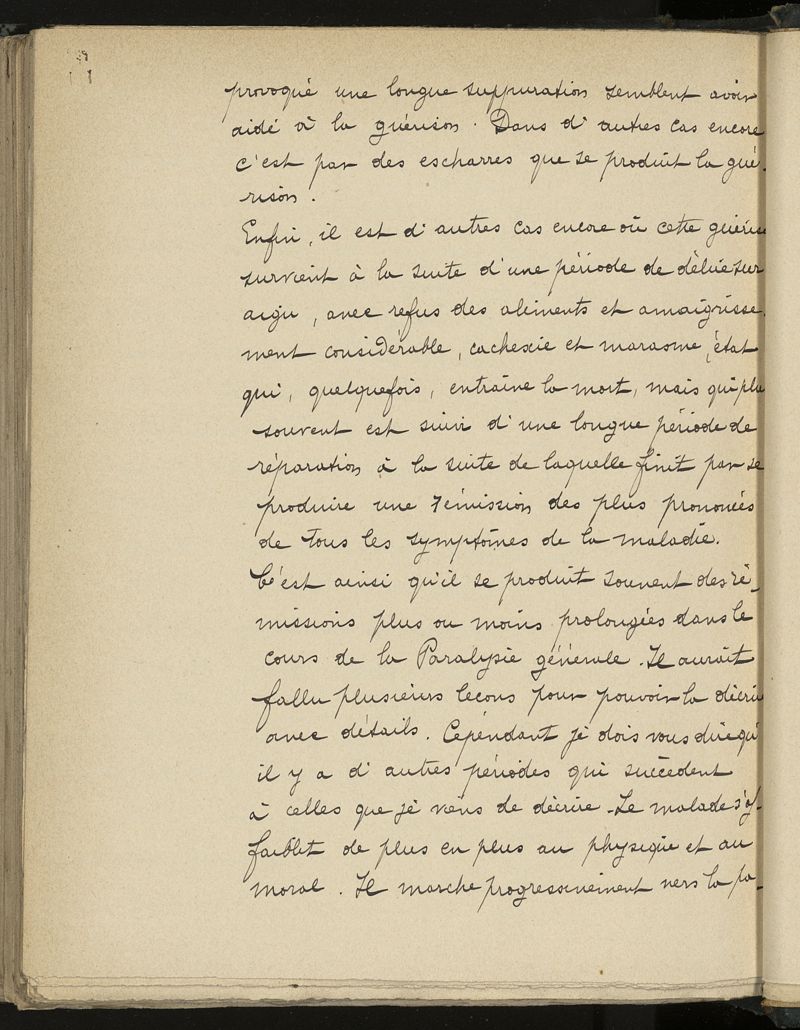 provoqué une longue suppuration semblent avoir
aidé à la guérison. Dans d'autres cas encore
c'est par des escharres que se produit la gué-
rison.
Enfin, il est d'autres cas encore où cette guéris
survient à la suite d'une période de délire sur
aigu, avec refus des aliments et amaigrisse-
ment considérable, cachexie et marasme, état
qui, quelquefois, entraîne la mort, mais qui plu
souvent est suivi d'une longue période de
réparation à la suite de laquelle finit par se
produire une rémission des plus prononcées
de tous les symptômes de la maladie.
C'est ainsi qu'il se produit souvent des ré-
missions plus ou moins prolongées dans le
cours de la Paralysie générale. Il aurait
fallu plusieurs leçons pour pouvoir la décrir
avec détails. Cépendant je dois vous dire qu'
il y a d'autres périodes qui succèdent
à celles que je viens de décrire - Le malade s'af-
faiblit de plus en plus au physique et au
moral. Il marche progressivement vers la pa-